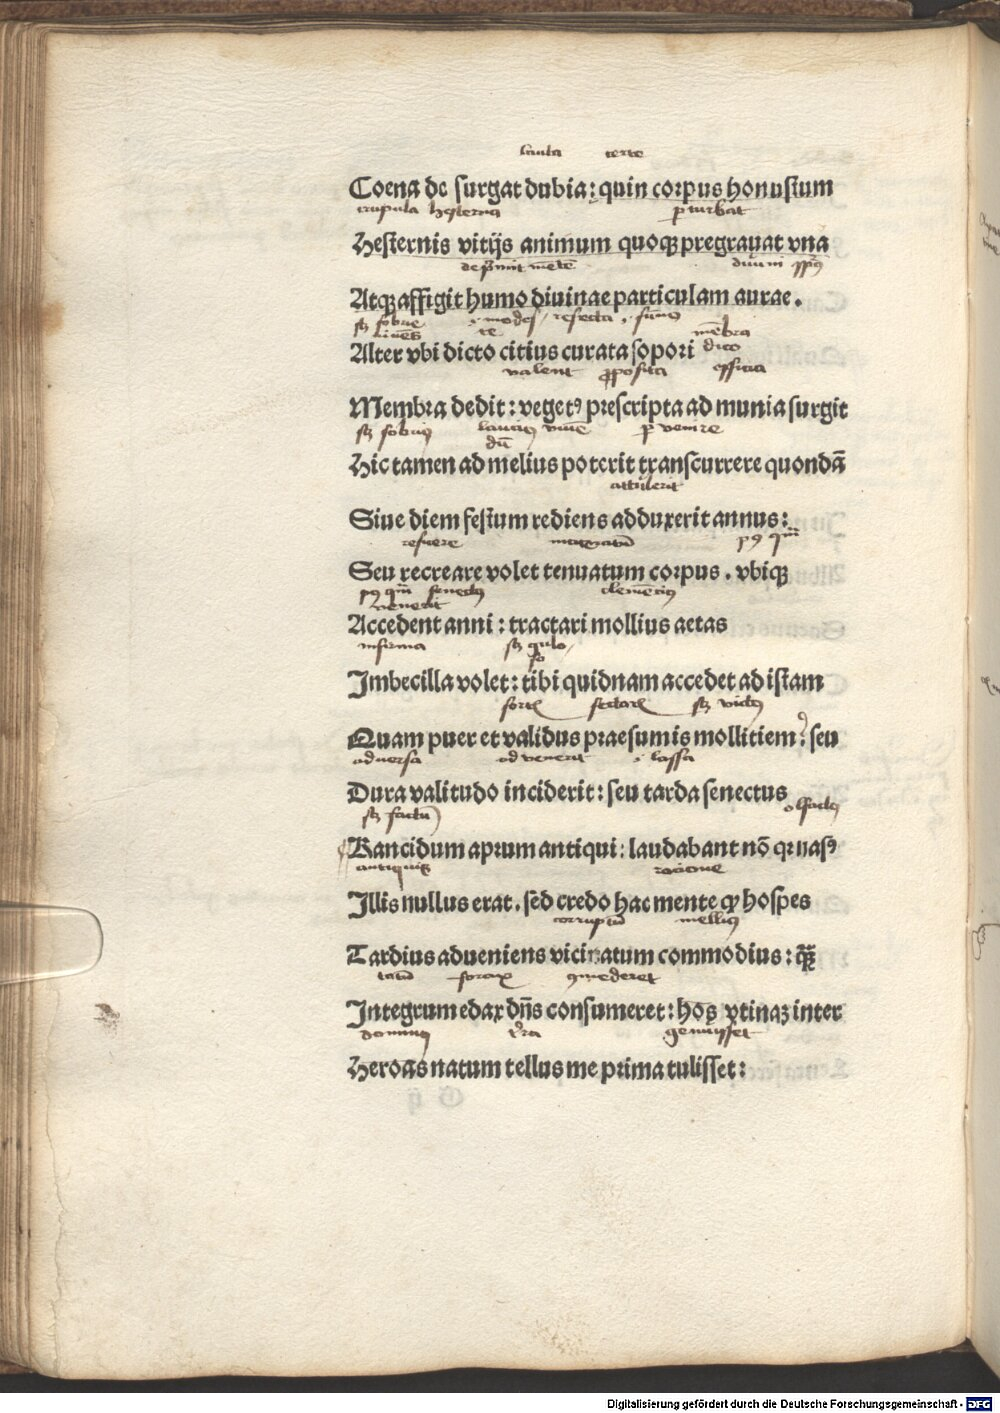 lauta certe
Coena de surgat dubia: quin corpus honustum
crapula hesterna pturbat
Hesternis vitijs animum quoqꝫ pregrauat vna
dep̄mit mētē diuini
Atqꝫ affigit humo diuinae particulam aurae.
sobrie refecta
mēbra
Alter vbi dicto citius curata sopori dicto
valent p̱posita officia
Membra dedit: vegetꝰ prescripta ad munia surgit
sobriꝰ lautiꝰ viuē puenire
Hic tamen ad melius poterit transcurrere quondā
attulerit
Siue diem festum rediens adduxerit annus:
reficere
Seu recreare volet tenuatum corpus. vbiqꝫ
senectꝰ clemētiꝰ
venerit
Accedent anni: tractari mollius aetas
infirma
Imbecilla volet: tibi quidnam accedet ad istam
Quam puer et validus praesumis mollitiem? seu
aduersa aduenerit lassa
Dura valitudo inciderit: seu tarda senectus
olfactꝰ
Rancidum aprum antiqui: laudabant nō qꝛ nasꝰ
antiquis racione
Illis nullus erat. sed credo hac mente ꝙ hospes
corruptū meliꝰ
Tardius adueniens vicinatum commodius: qͣꝫ
totū vorax gmederet
Integrum edax dn̄s consumeret: hos vtinaꝫ inter
dominꝰ tr̄ra genuisset
Heroas natum tellus me prima tulisset:
Digitalisierung gefördert durch die Deutsche Forschungsgemeinschaft - DFG